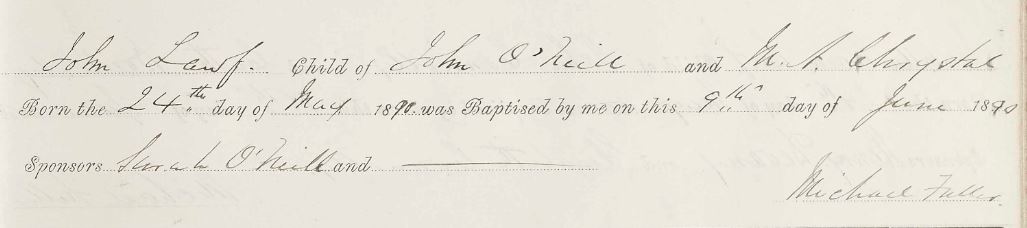 John Lawf. Child of John O'Neill and M. A. Chrystal
Born the 24th day of May 1890 was Baptised by me on this 9th day of June 1890
Sponsors Sarah O'Neill and
Michael Fuller.